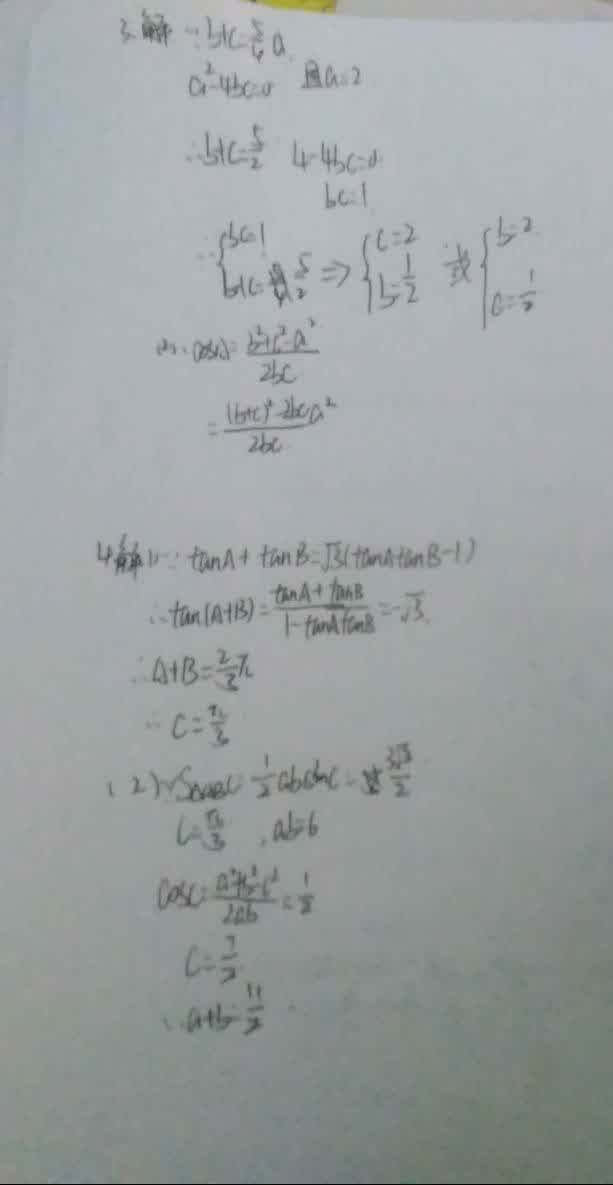 3. 解 ∵b+c=5/4 a
a²-4bc=0 且a=2
∴b+c=5/2 4-4bc=0
bc=1
∴{bc=1 b+c=5/2 ⇒ {c=2 b=1/2 或 {b=2 c=1/2
(2)∵cosA=(b²+c²-a²)/2bc
=((b+c)²-2bc a²)/2bc
4解 1)∵tanA+tanB=√3(tanAtanB-1)
∴tan(A+B)=(tanA+tanB)/(1-tanAtanB)=-√3
∴A+B=2/3π
∴C=π/3
(2)∵S△ABC 1/2absinC=3√3/2
C=π/3 ,ab=6
cosC=(a²+b²-c²)/2ab=1/2
C=7/2
∴a+b=11/2